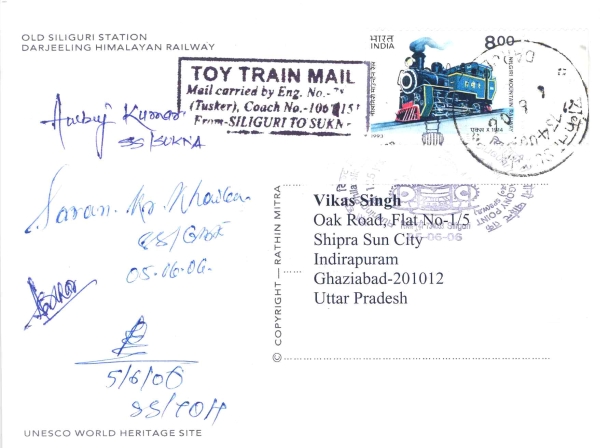 OLD SILIGURI STATION
DARJEELING HIMALAYAN RAILWAY
TOY TRAIN MAIL
Mail carried by Eng. No.-
(Tusker), Coach No.-106
From-SILIGURI TO SUKN
भारत
INDIA
8.00
NILGIRI MOUNTAIN RAILWAY
1993
Kumar
SS/SUKNA
Saran. Kr.
SS/
05.06.06.
5/6/06
SS/TDH
AGONY POINT
05-06-06
Vikas Singh
Oak Road, Flat No-1/5
Shipra Sun City
Indirapuram
Ghaziabad-201012
Uttar Pradesh
© COPYRIGHT — RATHIN MITRA
UNESCO WORLD HERITAGE SITE